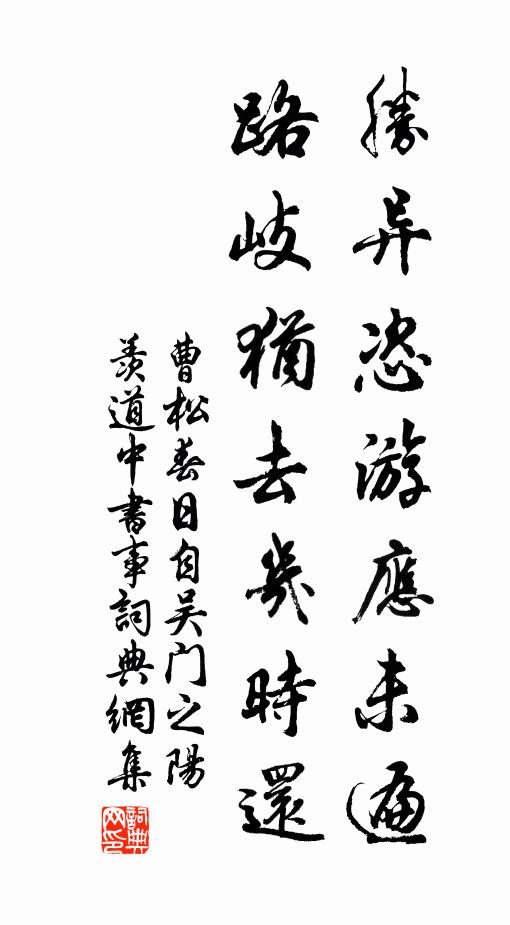 勝异恣游應未遍
路岐猶去幾時還
曹松春日自吴门之陽
羨道中書事詞典網集
詞典网印